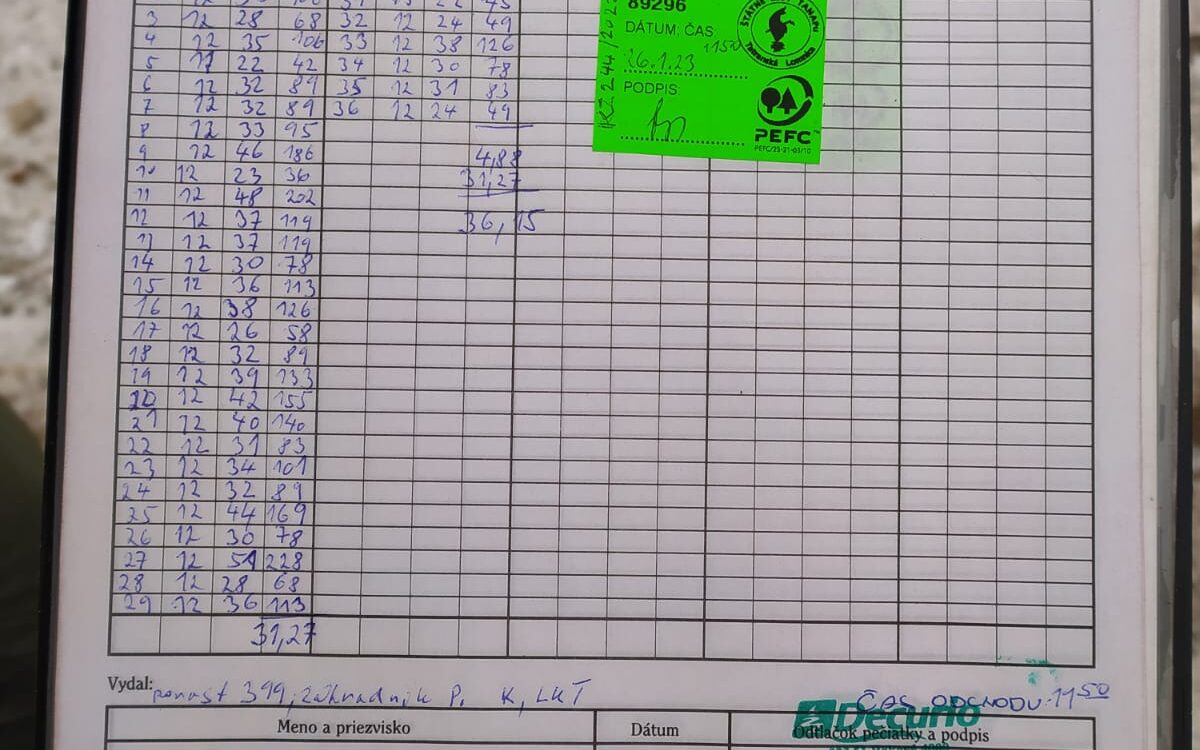 89296
DÁTUM, ČAS
1150
26.1.23
PODPIS:
KŽ 244/202
ŠTÁTNE LESY TANAPU
Tatranská Lomnica
PEFC™
PEFC/23-21-03/10
3 12 28 68 32 12 24 49
4 12 35 106 33 12 38 126
5 11 22 42 34 12 30 78
6 12 32 89 35 12 31 83
7 12 32 89 36 12 24 49
8 12 33 95
9 12 46 186 4,88
10 12 23 36 31,27
11 12 48 202
12 12 37 119 36,15
13 12 37 119
14 12 30 78
15 12 36 113
16 12 38 126
17 12 26 58
18 12 32 89
19 12 39 133
20 12 42 155
21 12 40 140
22 12 31 83
23 12 34 101
24 12 32 89
25 12 44 169
26 12 30 78
27 12 51 228
28 12 28 68
29 12 36 113
31,27
Vydal: porast 399, záhradník P. K, LKT
ČAS ODCHODU 11 50
Decurio
Meno a priezvisko Dátum Odtlačok pečiatky a podpis